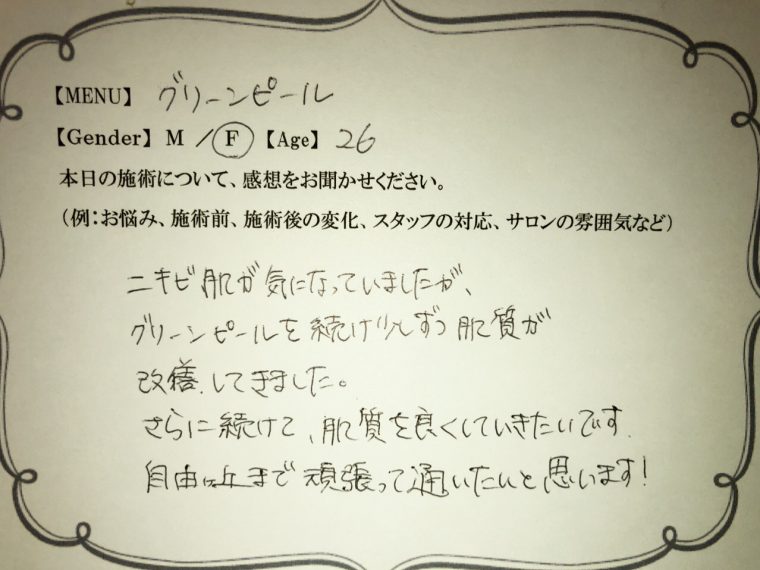 【MENU】 グリーンピール
【Gender】 M / F 【Age】 26
本日の施術について、感想をお聞かせください。
（例：お悩み、施術前、施術後の変化、スタッフの対応、サロンの雰囲気など）
ニキビ肌が気になっていましたが、
グリーンピールを続け少しずつ肌質が
改善してきました。
さらに続けて、肌質を良くしていきたいです。
まで頑張って通いたいと思います！